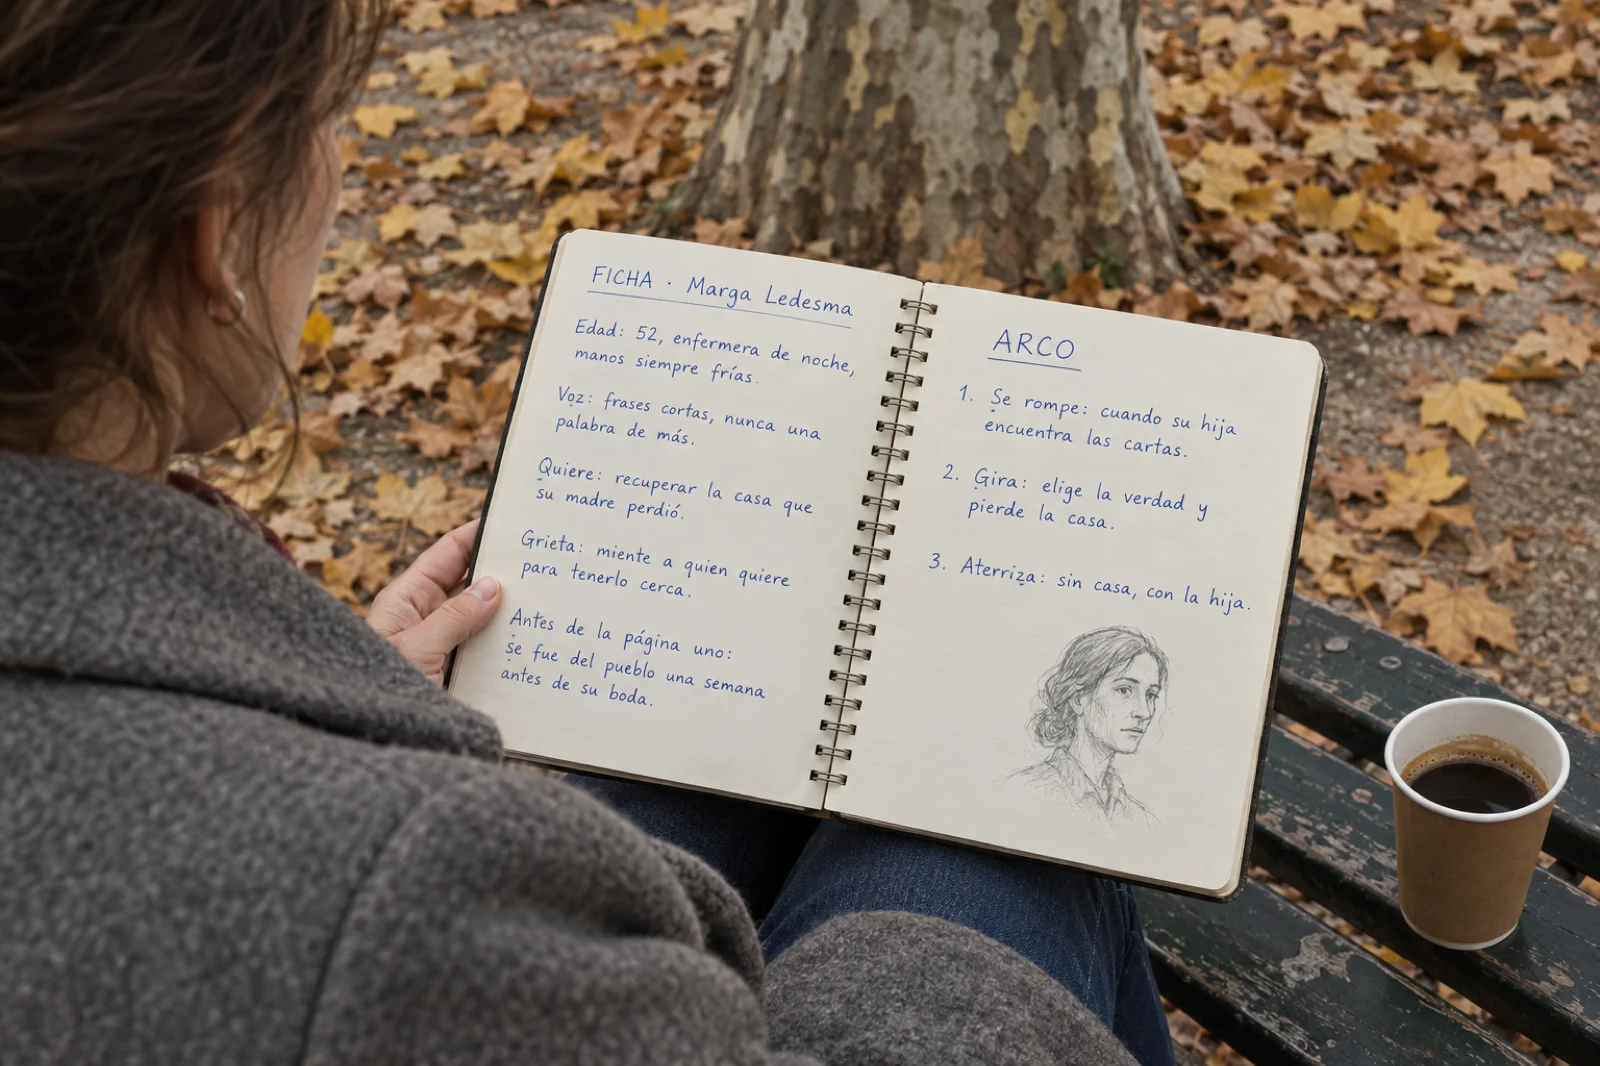 FICHA · Marga Ledesma
Edad: 52, enfermera de noche,
manos siempre frías.
Voz: frases cortas, nunca una
palabra de más.
Quiere: recuperar la casa que
su madre perdió.
Grieta: miente a quien quiere
para tenerlo cerca.
Antes de la página uno:
se fue del pueblo una semana
antes de su boda.
ARCO
1. Se rompe: cuando su hija
encuentra las cartas.
2. Gira: elige la verdad y
pierde la casa.
3. Aterriza: sin casa, con la hija.